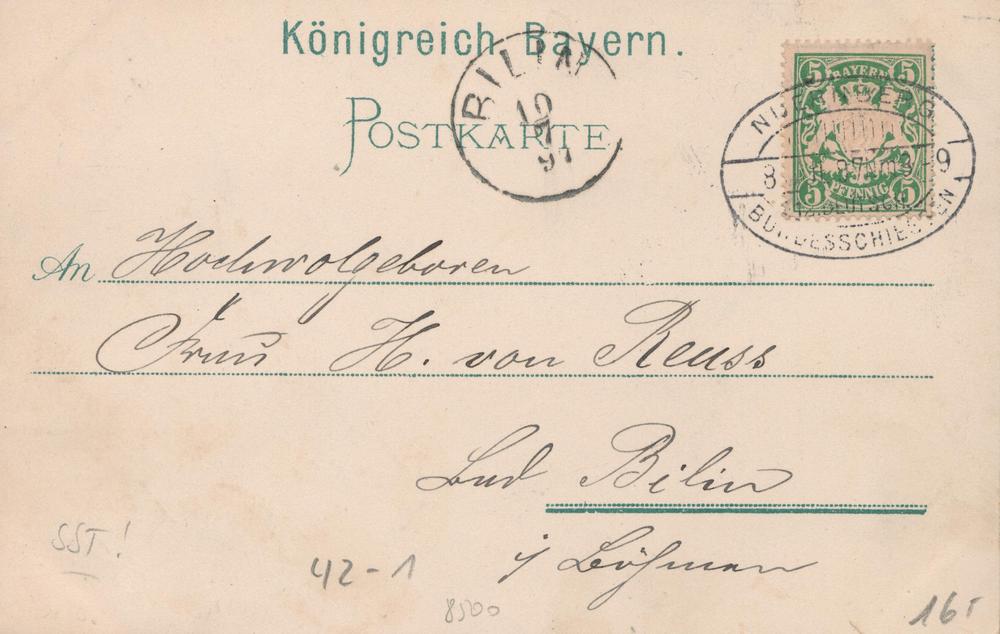 Königreich Bayern.
POSTKARTE
BILIN
10
7
97
5 BAYERN 5
5 PFENNIG 5
NUERNBERG
8 8-9
BUNDESSCHIESSEN
An Hochwolgeboren
Frau H. von Reuss
Bad Bilin
i/ Böhmen
SST!
42-1
8500
16